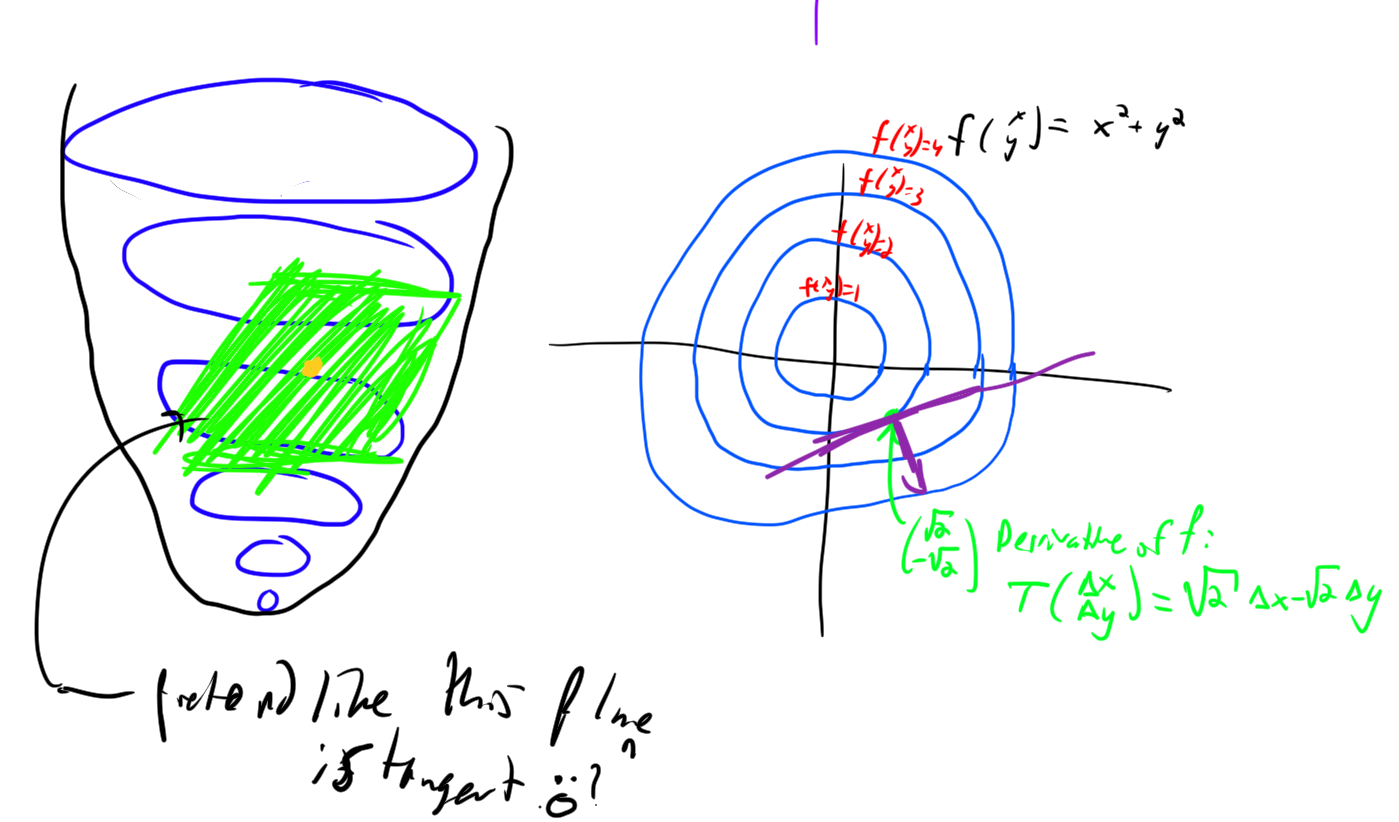 f(x y)=4
f(x y)= x²+y²
f(x y)=3
f(x y)=2
f(x y)=1
(√2 -√2)
Derivative of f:
T(Δx Δy)=√2 Δx-√2 Δy
pretend like this plane
is tangent